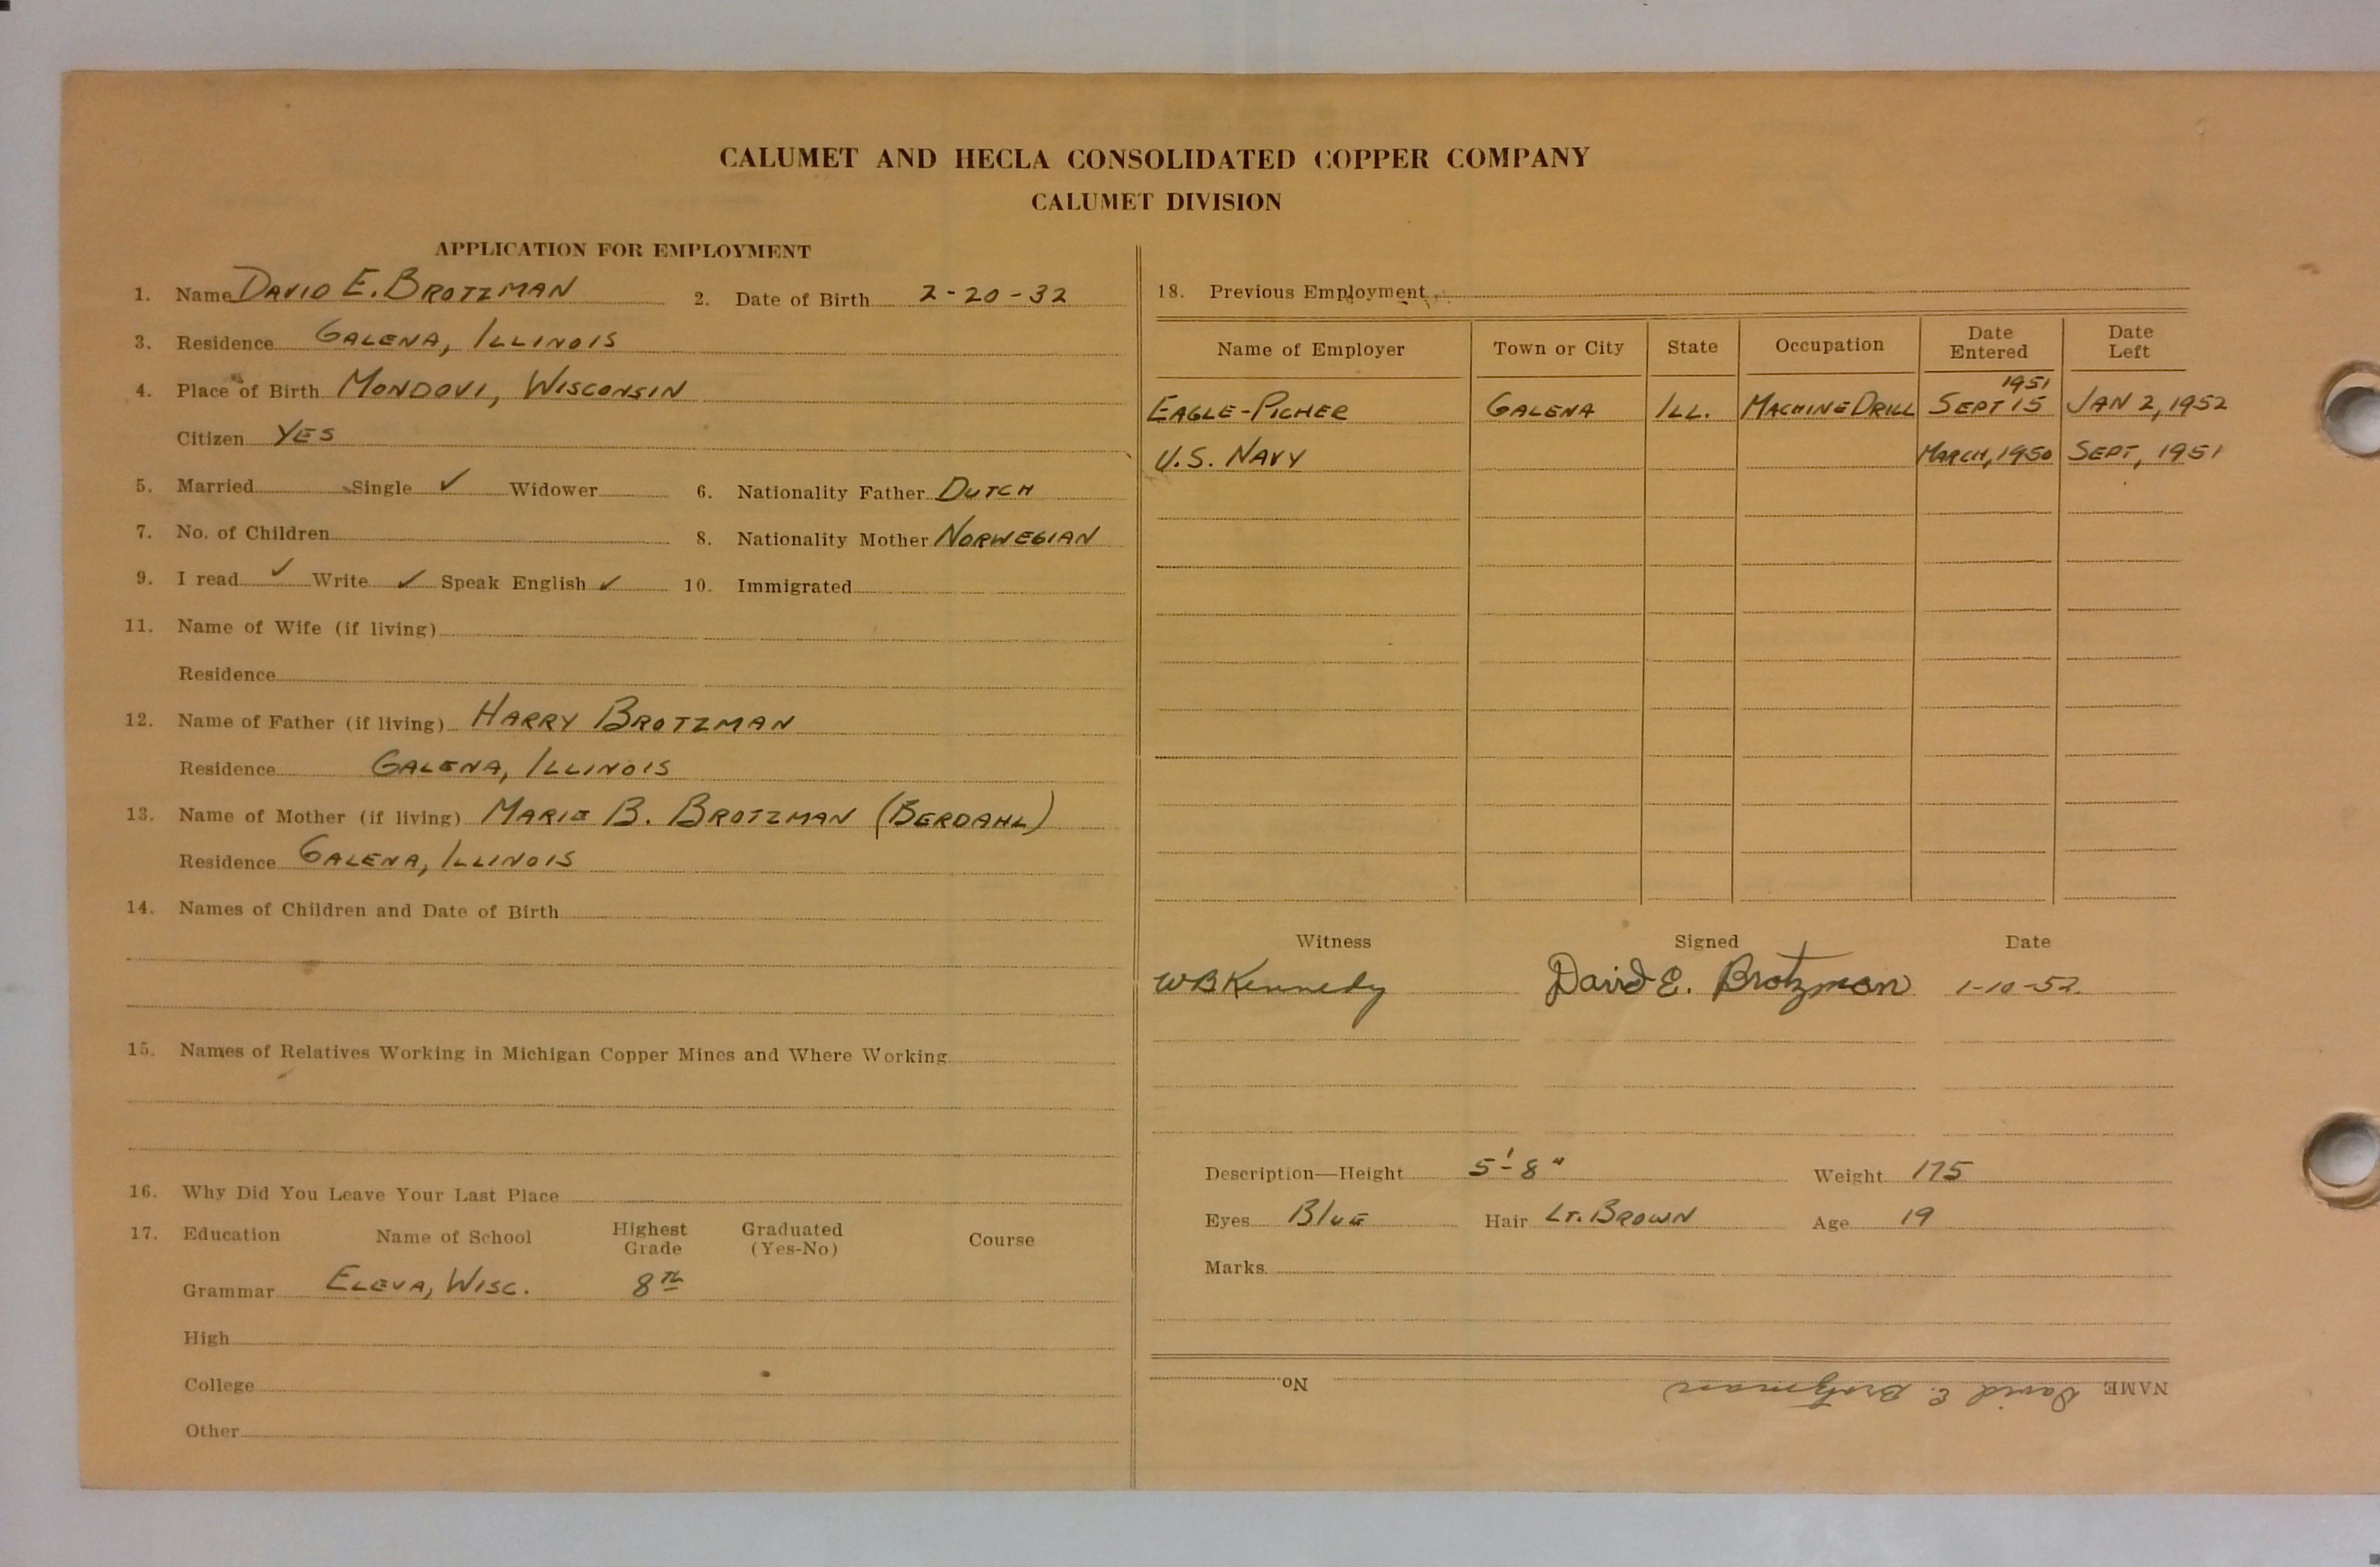 CALUMET AND HECLA CONSOLIDATED COPPER COMPANY
CALUMET DIVISION
APPLICATION FOR EMPLOYMENT
1. Name DAVID E. BROTZMAN 2. Date of Birth 2-20-32
3. Residence GALENA, ILLINOIS
4. Place of Birth MONDOVI, WISCONSIN
Citizen YES
5. Married Single ✓ Widower 6. Nationality Father DUTCH
7. No. of Children 8. Nationality Mother NORWEGIAN
9. I read ✓ Write ✓ Speak English ✓ 10. Immigrated
11. Name of Wife (if living)
Residence
12. Name of Father (if living) HARRY BROTZMAN
Residence GALENA, ILLINOIS
13. Name of Mother (if living) MARIE B. BROTZMAN (BERDAHL)
Residence GALENA, ILLINOIS
14. Names of Children and Date of Birth
15. Names of Relatives Working in Michigan Copper Mines and Where Working
16. Why Did You Leave Your Last Place
17. Education Name of School Highest Grade Graduated (Yes-No) Course
Grammar ELEVA, WISC. 8TH
High
College
Other
18. Previous Employment
Name of Employer Town or City State Occupation Date Entered Date Left
EAGLE-PICHER GALENA ILL. MACHINE DRILL SEPT 15 1951 JAN 2, 1952
U.S. NAVY MARCH, 1950 SEPT, 1951
Witness Signed Date
WB Kennedy David E. Brotzman 1-10-52
Description—Height 5'-8" Weight 175
Eyes Blue Hair LT. BROWN Age 19
Marks
NAME David E. Brotzman No.